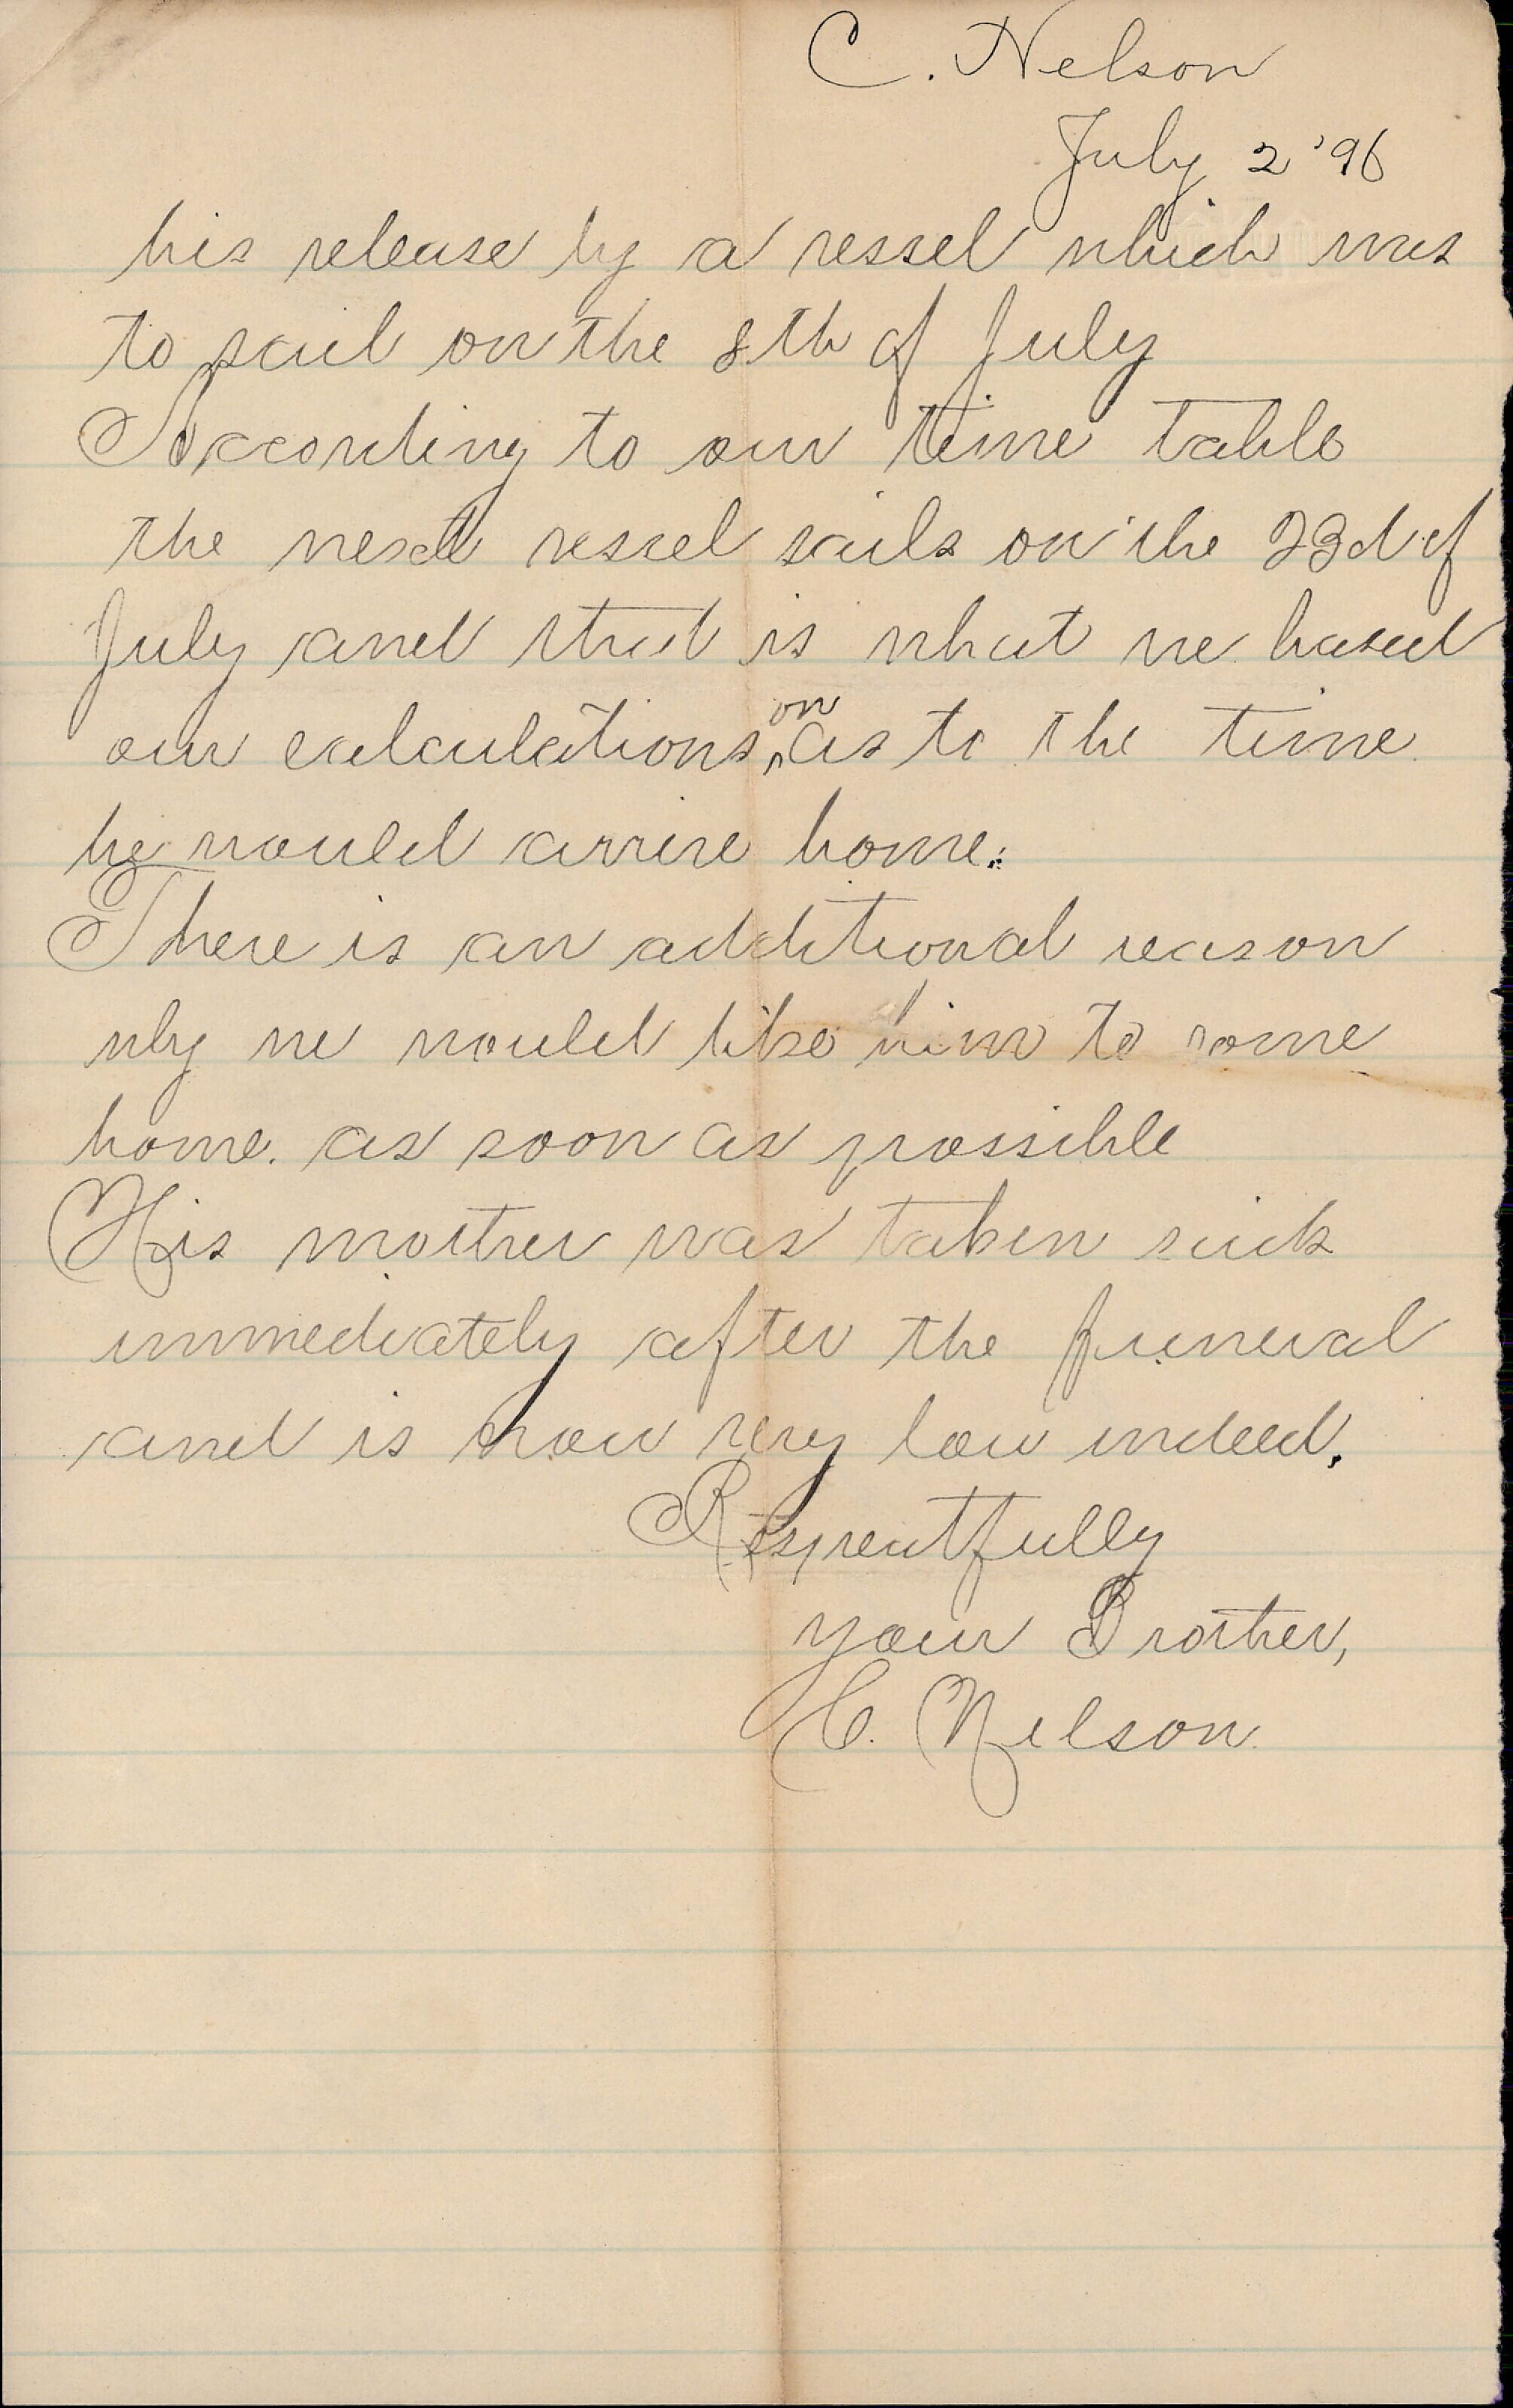 C. Nelson
July 2 '96
his release by a vessel which was
to sail on the 8th of July
According to our time table
the next vessel sails on the 23d of
July and that is what we based
our calculations on as to the time
he would arrive home.
There is an additional reason
why we would like him to come
home. as soon as possible
His mother was taken sick
immediately after the funeral
and is now very low indeed.
Respectfully
your Brother,
C. Nelson.